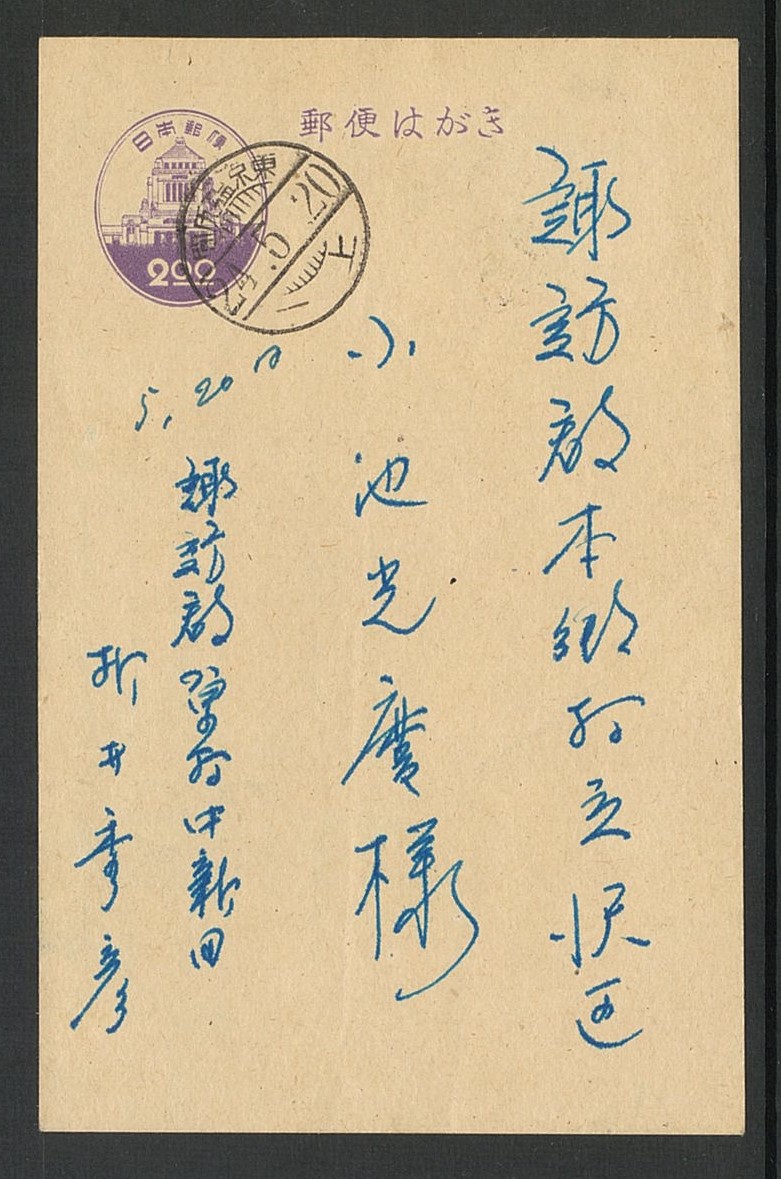 郵便はがき
日本郵便
2.00
東京
24.5.20
諏訪郡本郷村立沢区
小池光慶様
5.20日
諏訪郡原村中新田
折井季彦